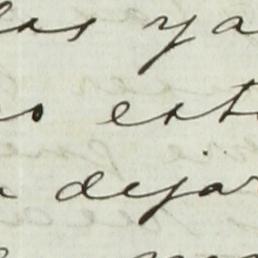 las ya
o est
a dejar